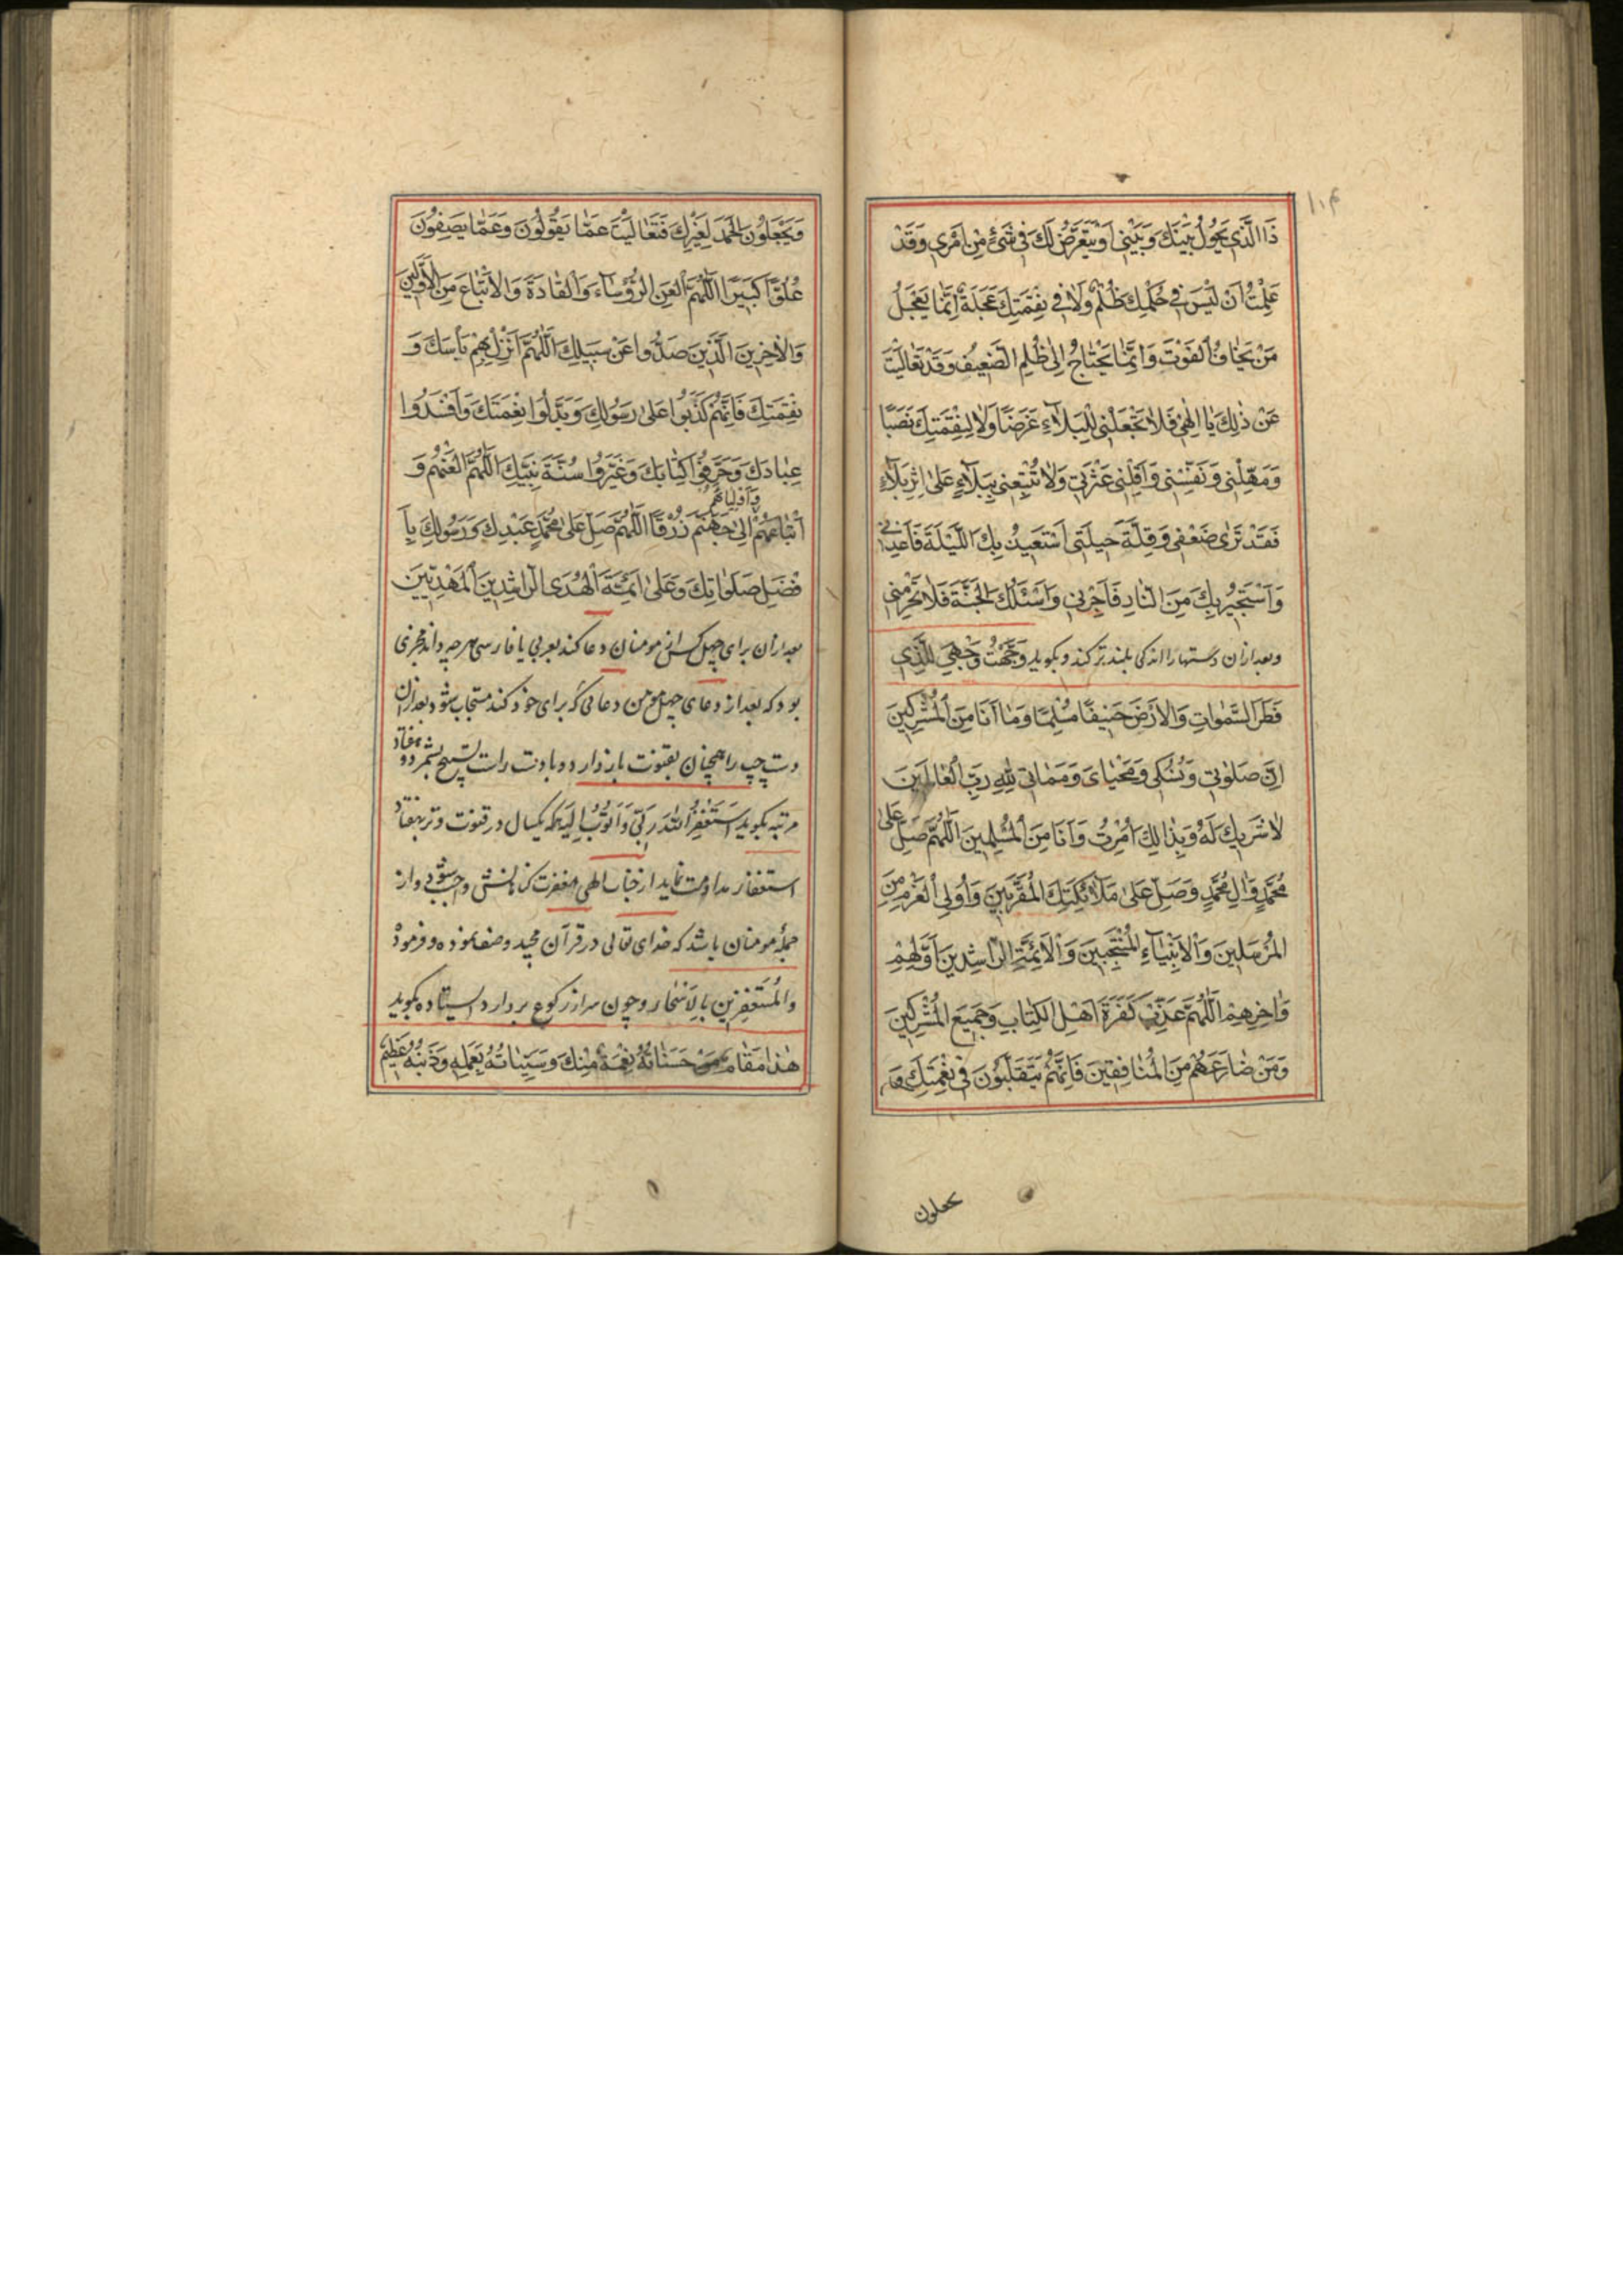 ۱۰۴
ذَا الَّذِي يَحُولُ بَيْنَكَ وَبَيْنِي اَوْ يَتَعَرَّضُ لَكَ فِي شَيْءٍ مِنْ اَمْرِي وَقَدْ
عَلِمْتُ اَنْ لَيْسَ فِي حُكْمِكَ ظُلْمٌ وَلَا فِي نِقْمَتِكَ عَجَلَةٌ اِنَّمَا يَعْجَلُ
مَنْ يَخَافُ الْفَوْتَ وَاِنَّمَا يَحْتَاجُ اِلَى ظُلْمِ الضَّعِيفِ وَقَدْ تَعَالَيْتَ
عَنْ ذٰلِكَ يَا اِلٰهِي فَلَا تَجْعَلْنِي لِلْبَلَاءِ غَرَضًا وَلَا لِنِقْمَتِكَ نَصَبًا
وَمَهِّلْنِي وَنَفِّسْنِي وَاَقِلْنِي عَثْرَتِي وَلَا تُتْبِعْنِي بِبَلَاءٍ عَلَى اِثْرِ بَلَاءٍ
فَقَدْ تَرٰى ضَعْفِي وَقِلَّةَ حِيلَتِي اَسْتَعِيذُ بِكَ اللَّيْلَةَ فَاَعِذْنِي
وَاَسْتَجِيرُ بِكَ مِنَ النَّارِ فَاَجِرْنِي وَاَسْئَلُكَ الْجَنَّةَ فَلَا تَحْرِمْنِي
وبعد ازان دستها را اندکی بلندتر کند و بکوید وَجَّهْتُ وَجْهِيَ لِلَّذِي
فَطَرَ السَّمٰوَاتِ وَالْاَرْضَ حَنِيفًا مُسْلِمًا وَمَا اَنَا مِنَ الْمُشْرِكِينَ
اِنَّ صَلٰوتِي وَنُسُكِي وَمَحْيَايَ وَمَمَاتِي لِلّٰهِ رَبِّ الْعَالَمِينَ
لَا شَرِيكَ لَهُ وَبِذٰلِكَ اُمِرْتُ وَاَنَا مِنَ الْمُسْلِمِينَ اَللّٰهُمَّ صَلِّ عَلٰى
مُحَمَّدٍ وَاٰلِ مُحَمَّدٍ وَصَلِّ عَلٰى مَلَائِكَتِكَ الْمُقَرَّبِينَ وَاُولِي الْعَزْمِ مِنَ
الْمُرْسَلِينَ وَالْاَنْبِيَاءِ الْمُنْتَجَبِينَ وَالْاَئِمَّةِ الرَّاشِدِينَ اَوَّلِهِمْ
وَاٰخِرِهِمْ اَللّٰهُمَّ عَذِّبْ كَفَرَةَ اَهْلِ الْكِتَابِ وَجَمِيعَ الْمُشْرِكِينَ
وَمَنْ ضَارَعَهُمْ مِنَ الْمُنَافِقِينَ فَاِنَّهُمْ يَتَقَلَّبُونَ فِي نِعْمَتِكَ وَ
يجعلون
وَيَجْعَلُونَ الْحَمْدَ لِغَيْرِكَ فَتَعَالَيْتَ عَمَّا يَقُولُونَ وَعَمَّا يَصِفُونَ
عُلُوًّا كَبِيرًا اَللّٰهُمَّ الْعَنِ الرُّؤَسَاءَ وَالْقَادَةَ وَالْاَتْبَاعَ مِنَ الْاَوَّلِينَ
وَالْاٰخِرِينَ الَّذِينَ صَدُّوا عَنْ سَبِيلِكَ اَللّٰهُمَّ اَنْزِلْ بِهِمْ بَأْسَكَ وَ
نِقْمَتَكَ فَاِنَّهُمْ كَذَبُوا عَلٰى رَسُولِكَ وَبَدَّلُوا نِعْمَتَكَ وَاَفْسَدُوا
عِبَادَكَ وَحَرَّفُوا كِتَابَكَ وَغَيَّرُوا سُنَّةَ نَبِيِّكَ اَللّٰهُمَّ الْعَنْهُمْ وَ
اَتْبَاعَهُمْ وَاَوْلِيَاءَهُمْ اِلٰى جَهَنَّمَ زُرْقًا اَللّٰهُمَّ صَلِّ عَلٰى مُحَمَّدٍ عَبْدِكَ وَرَسُولِكَ بِاَ
فْضَلِ صَلَوَاتِكَ وَعَلٰى اَئِمَّةِ الْهُدَى الرَّاشِدِينَ الْمَهْدِيِّينَ
بعد ازان برای چهل کس از مومنان دعا کند بعربی یا فارسی هرچه داند مجزی
بود که بعد از دعای چهل مومن دعائی که برای خود کند مستجاب شود بعد ازان
دست چپ را همچنان بقنوت باز دارد و با دست راست تسبیح بشمرد و هفتاد
مرتبه بکوید اَسْتَغْفِرُ اللّٰهَ رَبِّي وَاَتُوبُ اِلَيْهِ که یکسال در قنوت وتر بهفتاد
استغفار مداومت نماید از جناب الهی مغفرت کناهانش واجب شود و از
جملهٔ مومنان باشد که خدای تعالی در قرآن مجید وصف نموده و فرموده
وَالْمُسْتَغْفِرِينَ بِالْاَسْحَارِ و چون سر از رکوع بردارد ایستاده بکوید
هٰذَا مَقَامُ مَنْ حَسَنَاتُهُ نِعْمَةٌ مِنْكَ وَسَيِّئَاتُهُ بِعَمَلِهِ وَذَنْبُهُ عَظِيمٌ